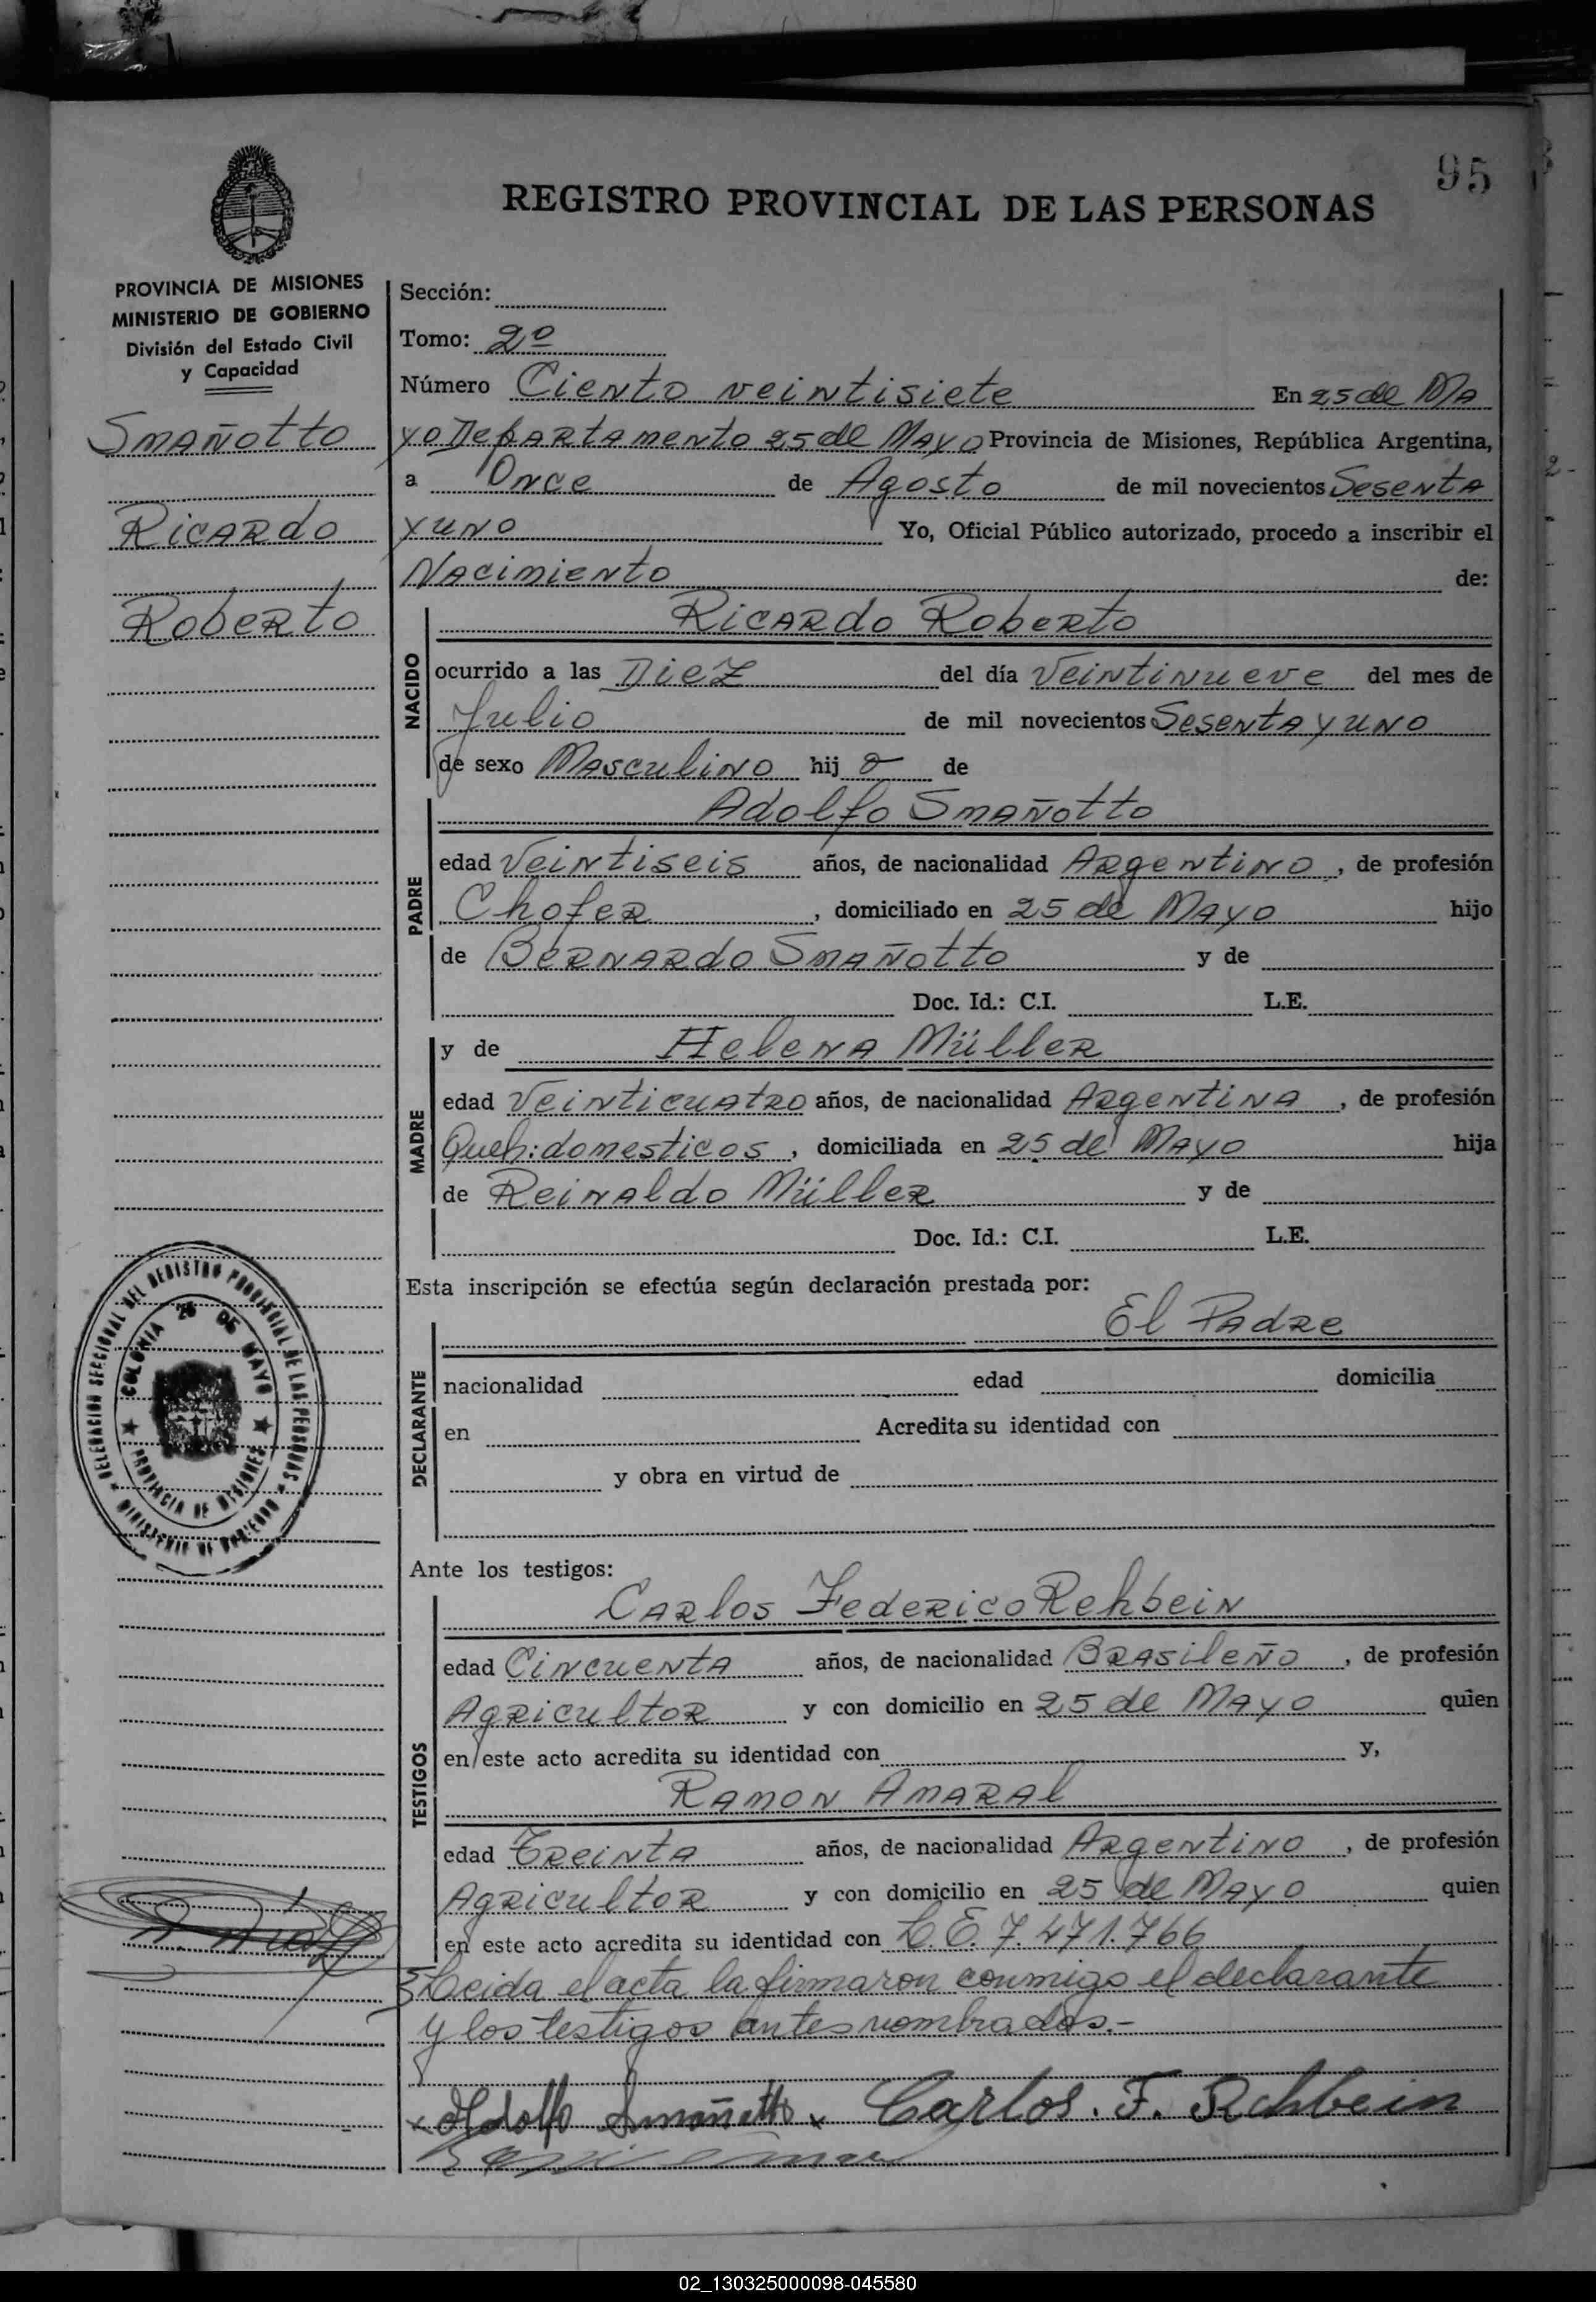 95
REGISTRO PROVINCIAL DE LAS PERSONAS
PROVINCIA DE MISIONES
MINISTERIO DE GOBIERNO
División del Estado Civil
y Capacidad
Smañotto
Ricardo
Roberto
Sección:
Tomo: 2º
Número Ciento veintisiete En 25 de Ma
yo Departamento 25 de Mayo Provincia de Misiones, República Argentina,
a Once de Agosto de mil novecientos Sesenta
y uno Yo, Oficial Público autorizado, procedo a inscribir el
Nacimiento de:
NACIDO
Ricardo Roberto
ocurrido a las Diez del día Veintinueve del mes de
Julio de mil novecientos Sesenta y uno
de sexo Masculino hij o de
PADRE
Adolfo Smañotto
edad Veintiseis años, de nacionalidad Argentino, de profesión
Chofer, domiciliado en 25 de Mayo hijo
de Bernardo Smañotto y de
Doc. Id.: C.I. L.E.
MADRE
y de Helena Müller
edad Veinticuatro años, de nacionalidad Argentina, de profesión
Queh: domesticos, domiciliada en 25 de Mayo hija
de Reinaldo Müller y de
Doc. Id.: C.I. L.E.
Esta inscripción se efectúa según declaración prestada por:
DECLARANTE
El Padre
nacionalidad edad domicilia
en Acredita su identidad con
y obra en virtud de
DELEGACION SECCIONAL DEL REGISTRO PROVINCIAL DE LAS PERSONAS
MINISTERIO DE GOBIERNO
COLONIA 25 DE MAYO
PROVINCIA DE MISIONES
Ante los testigos:
TESTIGOS
Carlos Federico Rehbein
edad Cincuenta años, de nacionalidad Brasileño, de profesión
Agricultor y con domicilio en 25 de Mayo quien
en este acto acredita su identidad con y,
Ramon Amaral
edad Treinta años, de nacionalidad Argentino, de profesión
Agricultor y con domicilio en 25 de Mayo quien
en este acto acredita su identidad con L.E. 7.471.766
Leida el acta la firmaron conmigo el declarante
y los testigos antes nombrados.-
x Adolfo Smañotto x Carlos. F. Rehbein
02_130325000098-045580